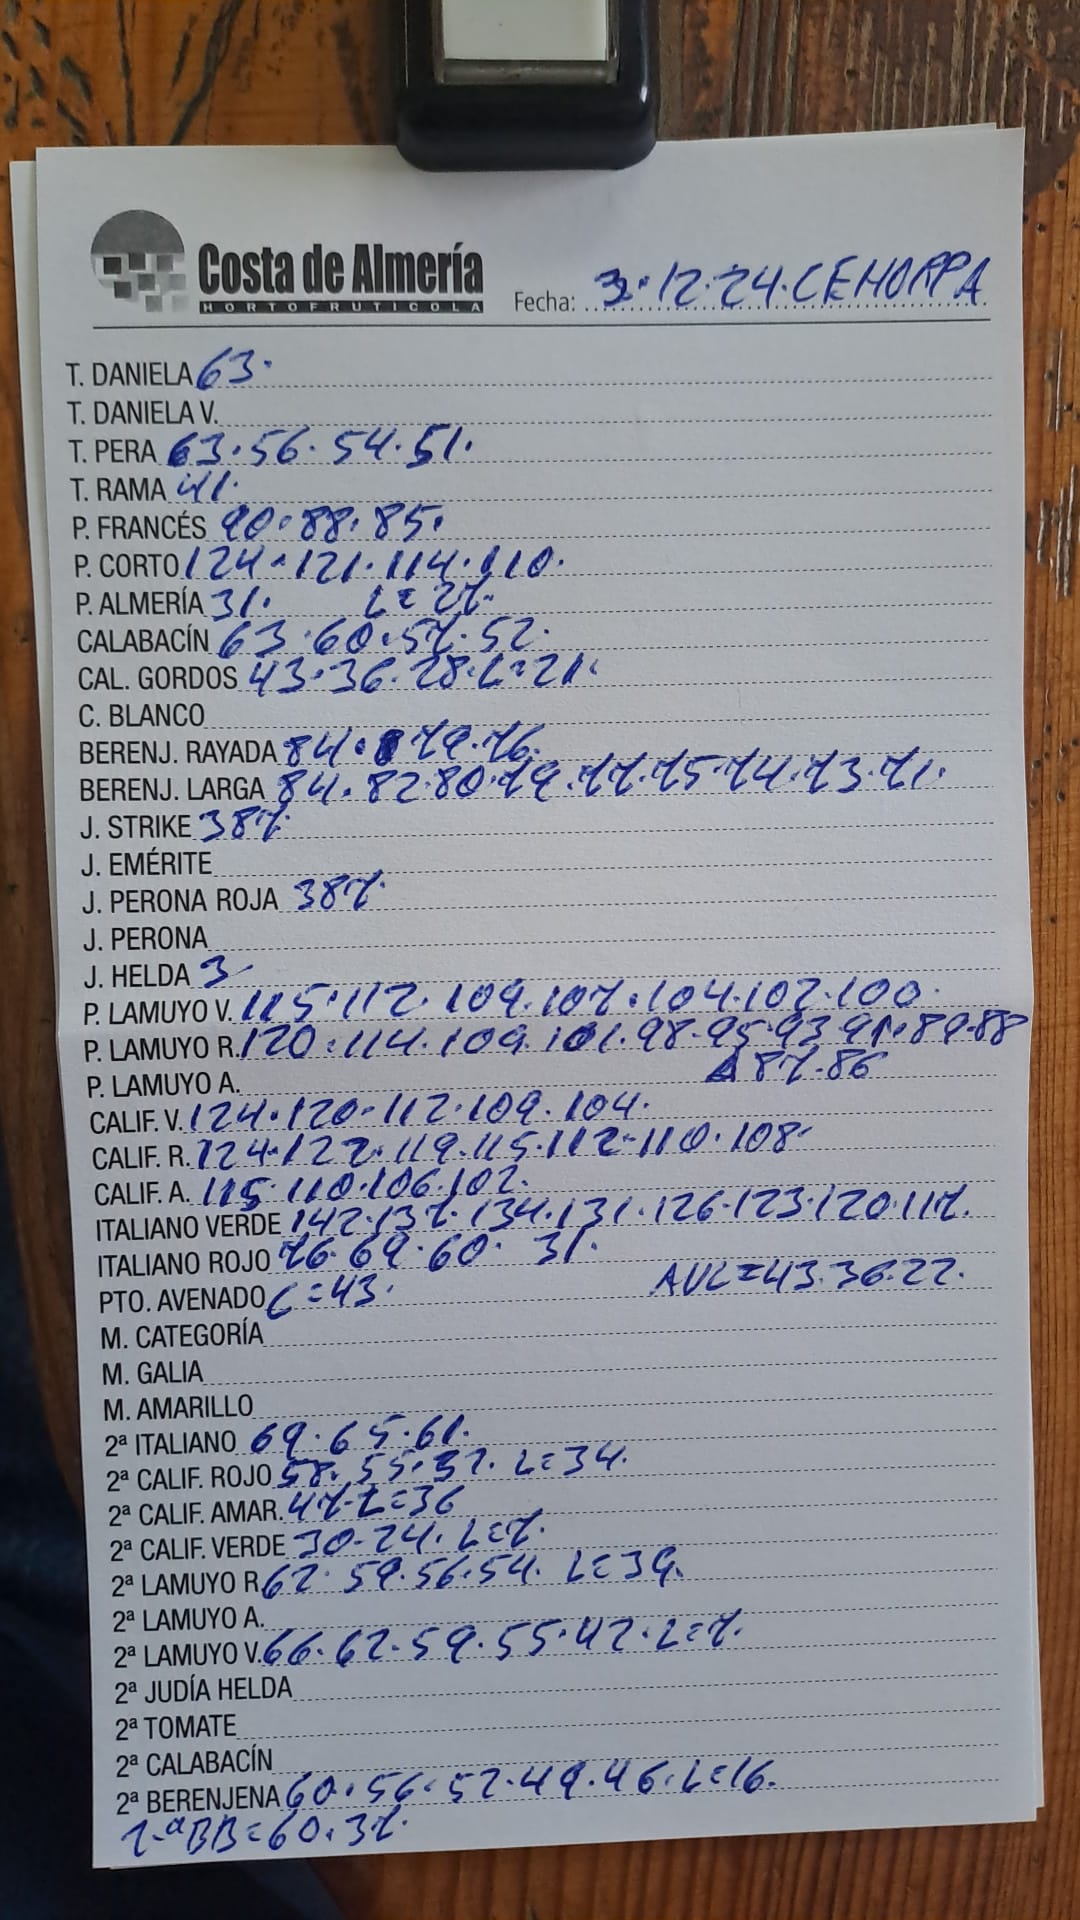 Costa de Almería
HORTOFRUTICOLA
Fecha: 3.12.24.CEHORPA
T. DANIELA 63.
T. DANIELA V.
T. PERA 63.56.54.51.
T. RAMA 41.
P. FRANCÉS 90.88.85.
P. CORTO 124.121.114.110.
P. ALMERÍA 31. L=27.
CALABACÍN 63.60.57.52.
CAL. GORDOS 43.36.28.L=21.
C. BLANCO
BERENJ. RAYADA 84. 79.76.
BERENJ. LARGA 84.82.80.79.77.75.74.73.71.
J. STRIKE 387.
J. EMÉRITE
J. PERONA ROJA 387.
J. PERONA
J. HELDA 3
P. LAMUYO V. 115.112.109.107.104.102.100.
P. LAMUYO R. 120.114.109.101.98.95.93.91.89.88
P. LAMUYO A. 87.86
CALIF. V. 124.120.112.109.104.
CALIF. R. 124.122.119.115.112.110.108.
CALIF. A. 115.110.106.102.
ITALIANO VERDE 142.137.134.131.126.123.120.117.
ITALIANO ROJO 76.69.60. 31.
PTO. AVENADO C=43. AVL=43.36.22.
M. CATEGORÍA
M. GALIA
M. AMARILLO
2ª ITALIANO 69.65.61.
2ª CALIF. ROJO 58.55.37. L=34.
2ª CALIF. AMAR. 47.L=36
2ª CALIF. VERDE 30.24. L=7.
2ª LAMUYO R 62.59.56.54. L=39.
2ª LAMUYO A.
2ª LAMUYO V. 66.62.59.55.42.L=7.
2ª JUDÍA HELDA
2ª TOMATE
2ª CALABACÍN
2ª BERENJENA 60.56.52.49.46.L=16.
2ªBB=60.37.